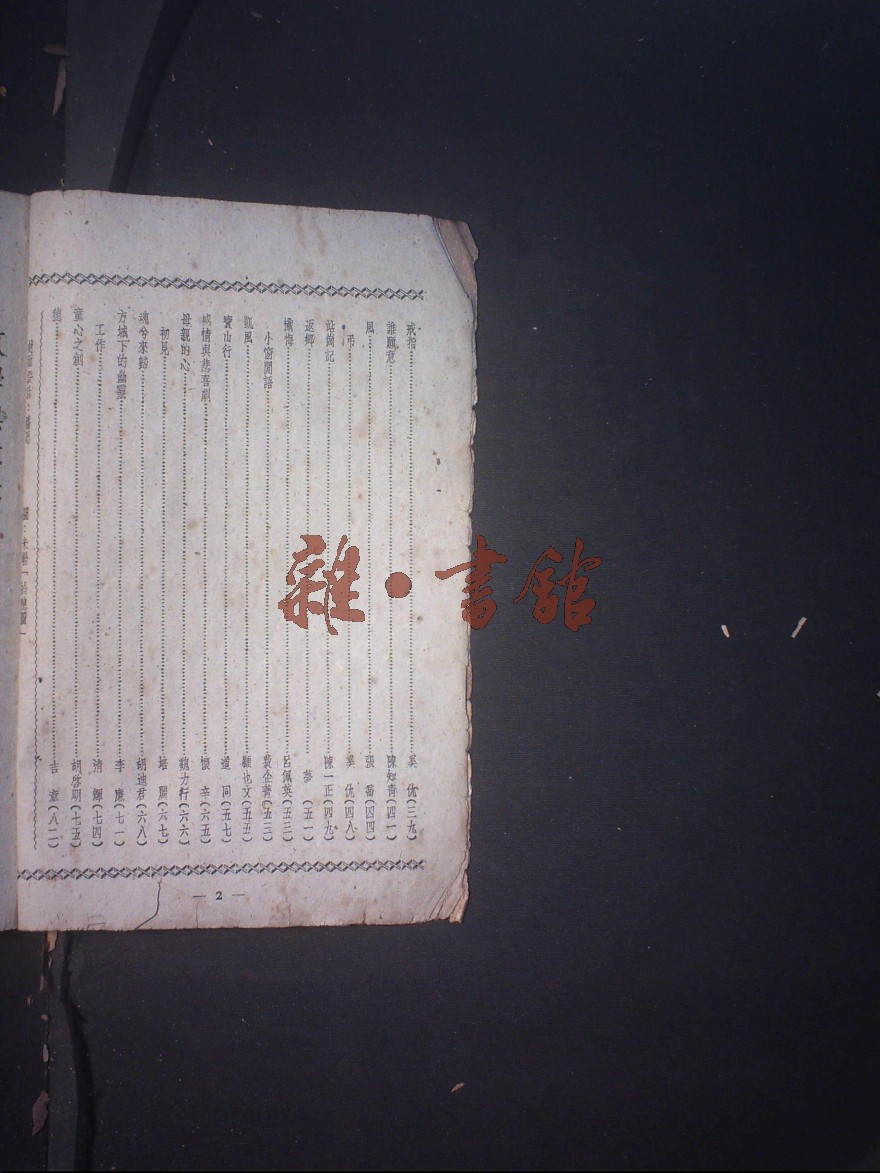 戒指……奚 仇(三九)
誰願意……陳知青(四一)
風……張 蕃(四四)
弔……奚 仇(四八)
站崗記……陳一正(四九)
返鄉……夢 (五一)
懺悔……呂佩英(五三)
小窗閒語……裴企菁(五三)
凱風……顧也文(五五)
寶山行……道 同(五七)
感情與悲喜劇……懷 辛(六五)
母親的心……魏力行(六六)
初見……培 (六七)
魂兮來歸……胡迪君(六八)
方城下的幽靈……李 廉(七一)
工作……清 輝(七四)
童心之劍……胡啓明(七五)
……吉 童(八二)
— 2 —
雜·書館